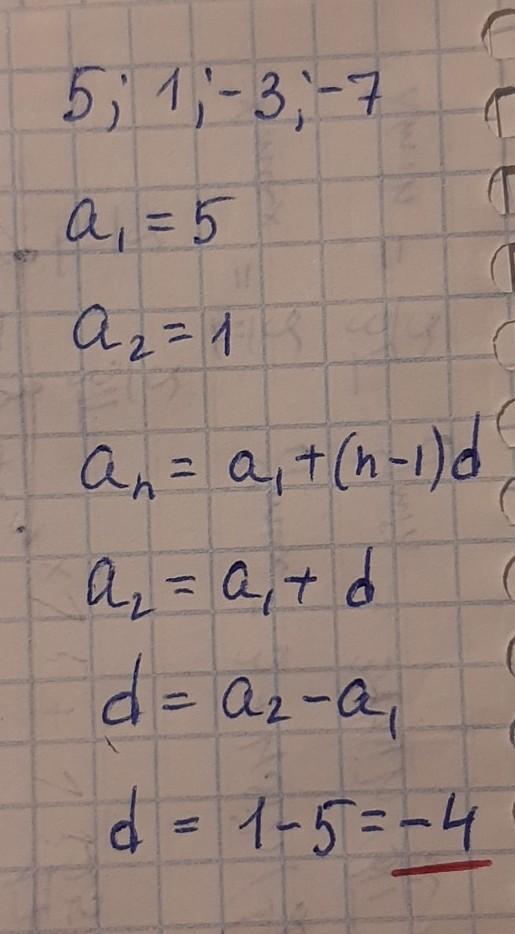 5; 1; -3; -7
a₁ = 5
a₂ = 1
aₙ = a₁ + (n-1)d
a₂ = a₁ + d
d = a₂ - a₁
d = 1 - 5 = -4